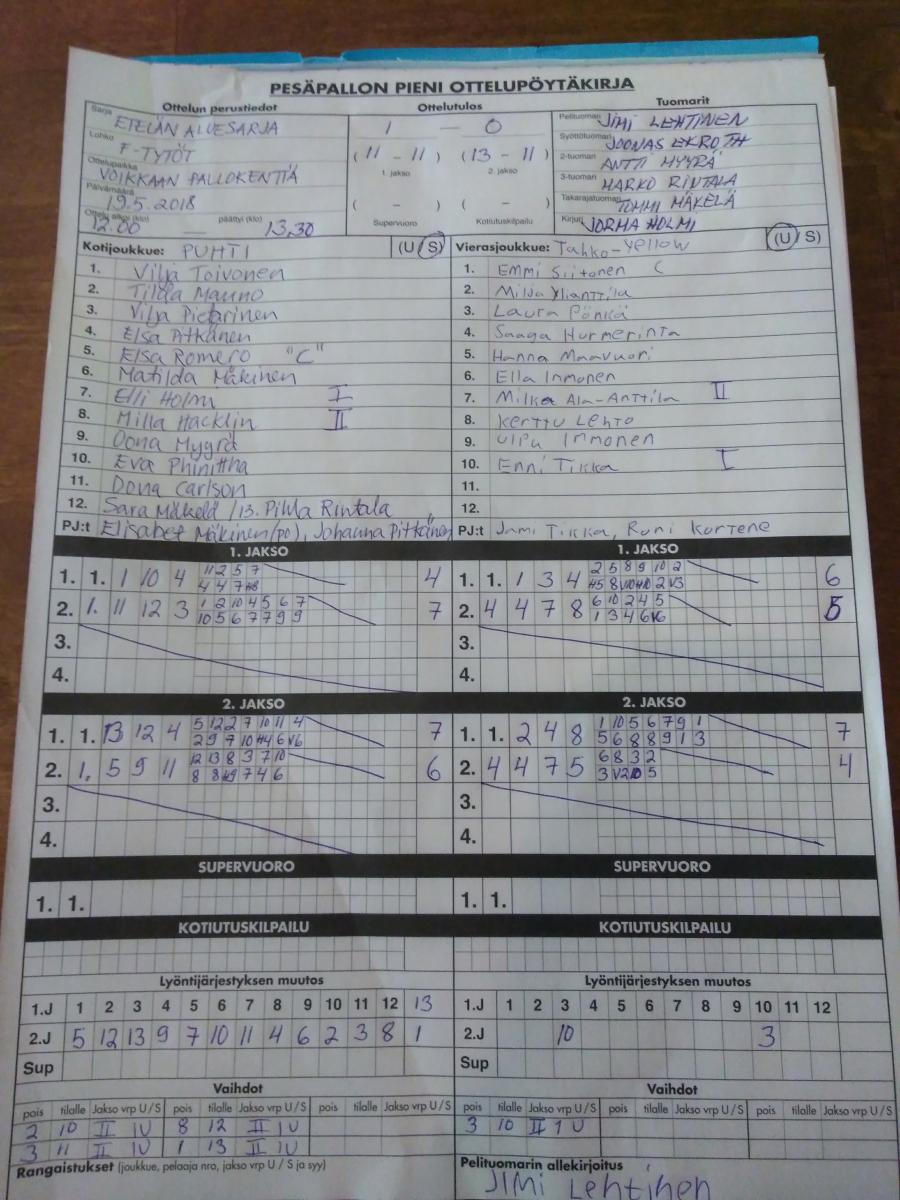 PESÄPALLON PIENI OTTELUPÖYTÄKIRJA
Ottelun perustiedot Ottelutulos Tuomarit
Sarja ETELÄN ALUESARJA
Lohko F-TYTÖT
Ottelupaikka VOIKKAAN PALLOKENTTÄ
Päivämäärä 19.5.2018
Ottelu alkoi (klo) 12.00 — päättyi (klo) 13.30
1 — 0
(11 – 11) (13 – 11)
1. jakso 2. jakso
( – ) ( – )
Supervuoro Kotiutuskilpailu
Pelituomari JIMI LEHTINEN
Syöttötuomari JOONAS EKROTH
2-tuomari ANTTI MYYRÄ
3-tuomari MARKO RINTALA
Takarajatuomari TOMMI MÄKELÄ
Kirjuri JORMA HOLMI
Kotijoukkue: PUHTI (U/S)
1. Vilja Toivonen
2. Tilda Mauno
3. Vilja Pietarinen
4. Elsa Pitkänen
5. Elsa Romero "C"
6. Matilda Mäkinen
7. Elli Holm I
8. Milla Hacklin II
9. Oona Myyrä
10. Eva
11. Oona Carlson
12. Sara Mäkelä /13. Pihla Rintala
PJ:t Elisabet Mäkinen(po), Johanna Pitkänen
Vierasjoukkue: Tahko-Yellow (U/S)
1. Emmi Siitonen C
2. Milja Ylianttila
3. Laura Pönkä
4. Saaga Hurmerinta
5. Hanna Maavuori
6. Ella Immonen
7. Milka Ala-Anttila II
8. Kerttu Lehto
9. Ulpu Immonen
10. Enni Tikka I
11.
12.
PJ:t Jami Tikka, Roni Kortene
1. JAKSO
1. 1. 1 10 4 11 2 5 7 4
4 4 7
2. 1. 11 12 3 1 2 10 4 5 6 7 7
10 5 6 7 7 9 9
3.
4.
1. JAKSO
1. 1. 1 3 4 2 5 8 9 10 2 6
2. 4 4 7 8 6 10 2 4 5 5
1 3 4 6 V6
3.
4.
2. JAKSO
1. 1. 13 12 4 5 12 2 7 10 11 4 7
2 9 7 10 6 V6
2. 1. 5 9 11 12 13 8 3 7 10 6
8 8 7 4 6
3.
4.
2. JAKSO
1. 1. 2 4 8 1 10 5 6 7 9 1 7
5 6 8 8 9 1 3
2. 4 4 7 5 6 8 3 2 4
3 V2 10 5
3.
4.
SUPERVUORO
1. 1.
SUPERVUORO
1. 1.
KOTIUTUSKILPAILU
KOTIUTUSKILPAILU
Lyöntijärjestyksen muutos
1.J 1 2 3 4 5 6 7 8 9 10 11 12 13
2.J 5 12 13 9 7 10 11 4 6 2 3 8 1
Sup
Lyöntijärjestyksen muutos
1.J 1 2 3 4 5 6 7 8 9 10 11 12
2.J 10 3
Sup
Vaihdot
pois tilalle Jakso vrp U/S pois tilalle Jakso vrp U/S pois tilalle Jakso vrp U/S
2 10 II 1U 8 12 II 1U
3 11 II 1U 1 13 II 1U
Rangaistukset (joukkue, pelaaja nro, jakso vrp U / S ja syy)
Vaihdot
pois tilalle Jakso vrp U/S pois tilalle Jakso vrp U/S pois tilalle Jakso vrp U/S
3 10 II 1 U
Pelituomarin allekirjoitus
JIMI Lehtinen